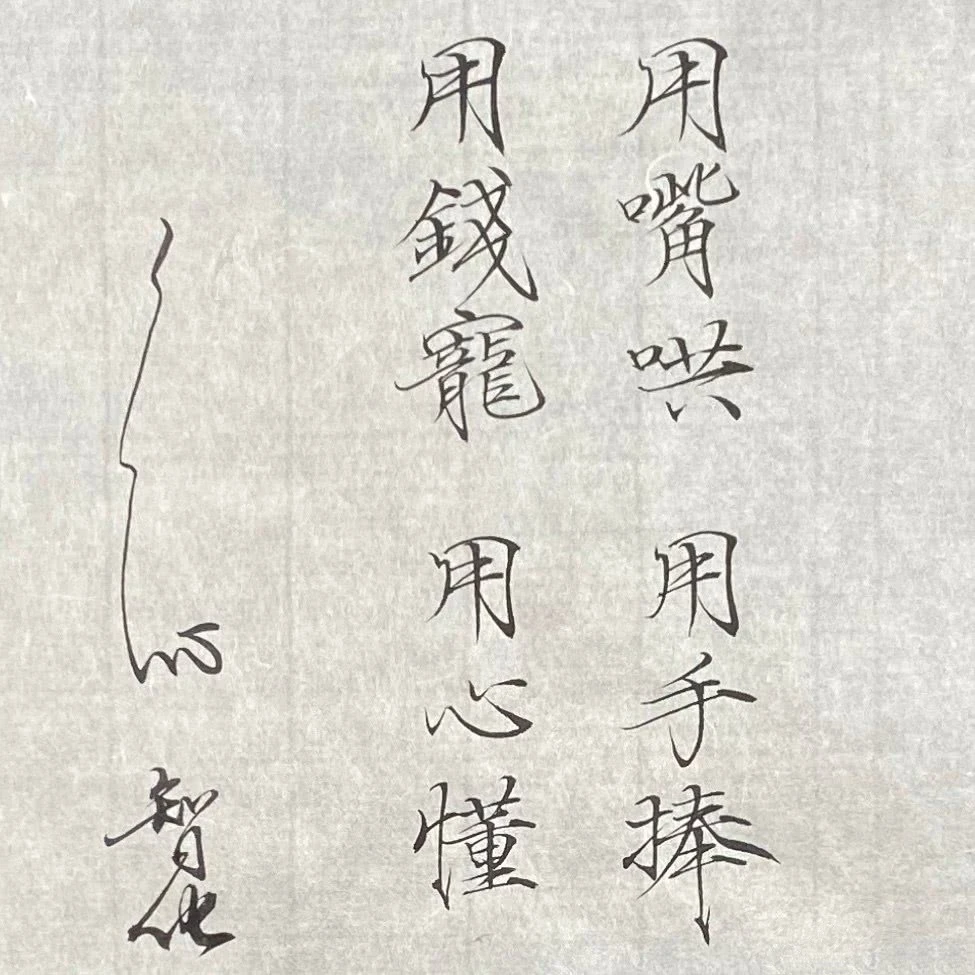 用嘴哄 用手捧
用錢寵 用心懂
智化